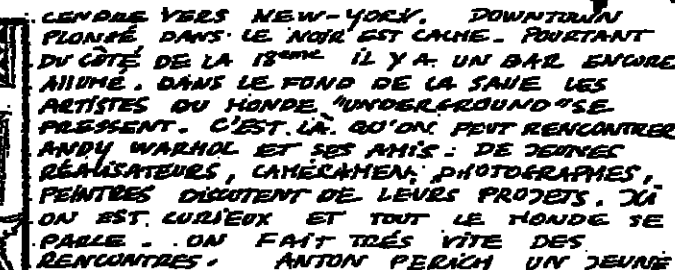 CENDRE VERS NEW-YORK. DOWNTOWN
PLONGÉ DANS LE NOIR EST CALME. POURTANT
DU CÔTÉ DE LA 18eme IL Y A UN BAR ENCORE
ALLUMÉ. DANS LE FOND DE LA SALLE LES
ARTISTES DU MONDE "UNDERGROUND" SE
PRESSENT. C'EST LÀ QU'ON PEUT RENCONTRER
ANDY WARHOL ET SES AMIS : DE JEUNES
RÉALISATEURS, CAMÉRAMEN, PHOTOGRAPHES,
PEINTRES DISCUTENT DE LEURS PROJETS. ICI
ON EST CURIEUX ET TOUT LE MONDE SE
PARLE. ON FAIT TRÉS VITE DES
RENCONTRES. ANTON PERICH UN JEUNE